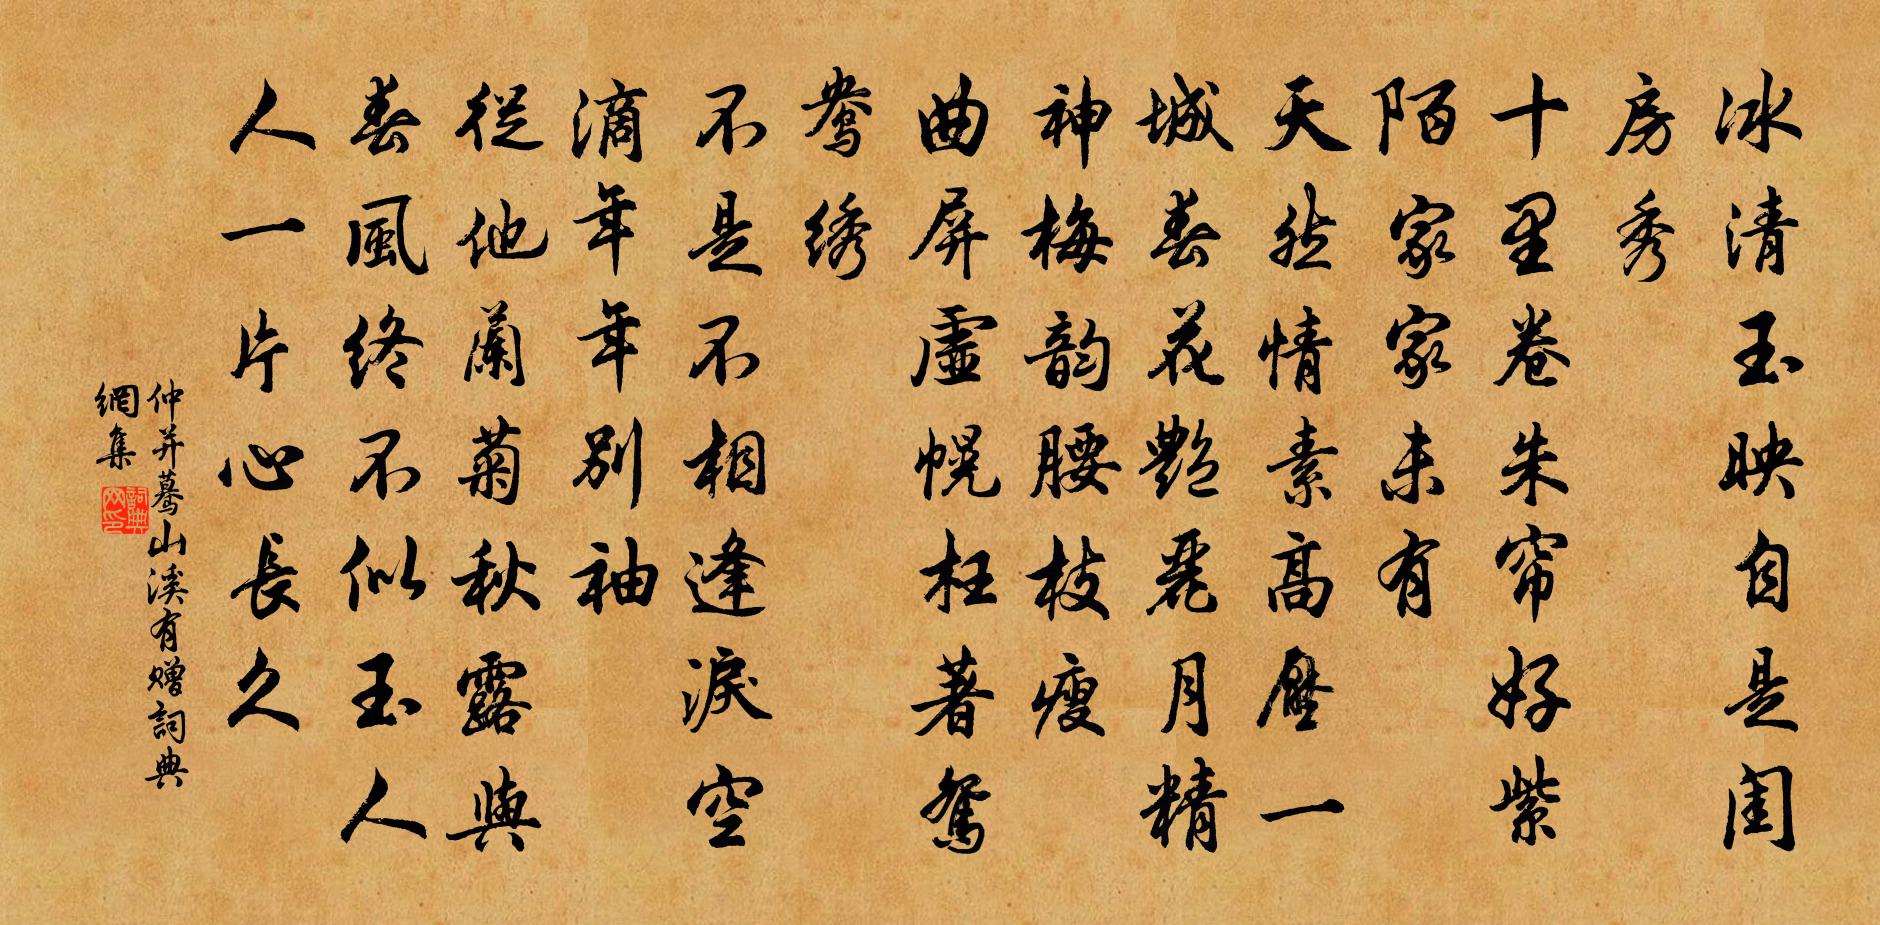 冰清玉映自是闺
房秀
十里卷朱帘好紫
陌家家未有
天然情素高压一
城春花艳丽月精
神梅韵腰枝瘦
曲屏虚幌枉著鸳
鸯绣
不是不相逢淚空
滴年年别袖
從他蘭菊秋露與
春風终不似玉人
人一片心長久
仲并蓦山溪有赠詞典
網集
詞典
网印